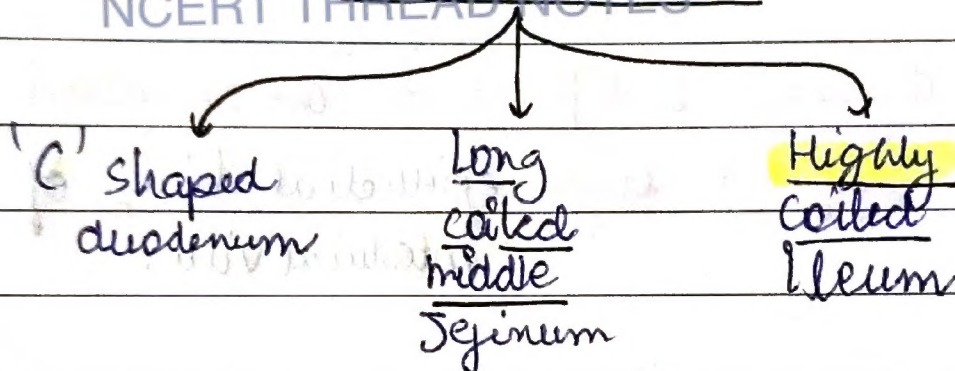 NCERT THREAD NOTES
'C' shaped
duodenum
Long
coiled
middle
Jejinum
Highly
Coiled
Ileum